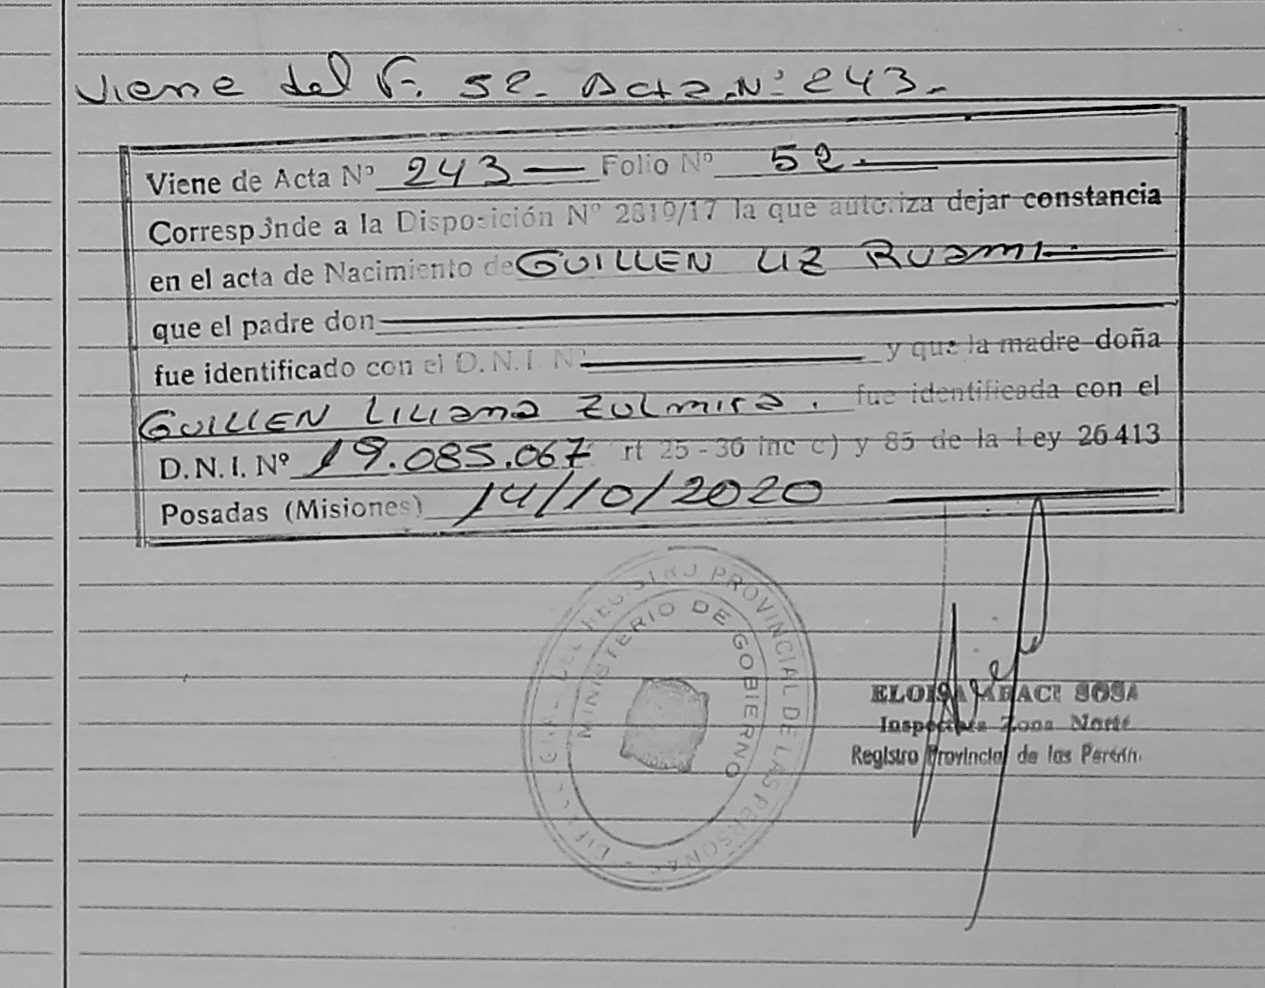 Viene del F. 52. Acta Nº 243.
Viene de Acta Nº 243 Folio Nº 52.
Correspónde a la Disposición Nº 2819/17 la que autoriza dejar constancia
en el acta de Nacimiento de GUILLEN LIZ RUAMI
que el padre don
fue identificado con el D.N.I Nº y que la madre doña
GUILLEN LILIANA ZULMIRA. fue identificada con el
D.N.I. Nº 19.085.067 rt 25-36 inc c) y 85 de la Ley 26413
Posadas (Misiones) 14/10/2020
REGISTRO PROVINCIAL DE LAS PERSONAS
MINISTERIO DE GOBIERNO
SOSA
Zona Norte
Registro Provincial de las Person.